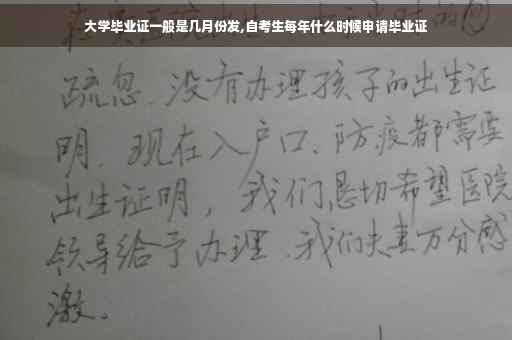 大学毕业证一般是几月份发,自考生每年什么时候申请毕业证
疏忽、没有办理孩子的出生证
明、现在入户口、防疫都需要
出生证明，我们恳切希望医院
领导给予办理、我们夫妻万分感
激。